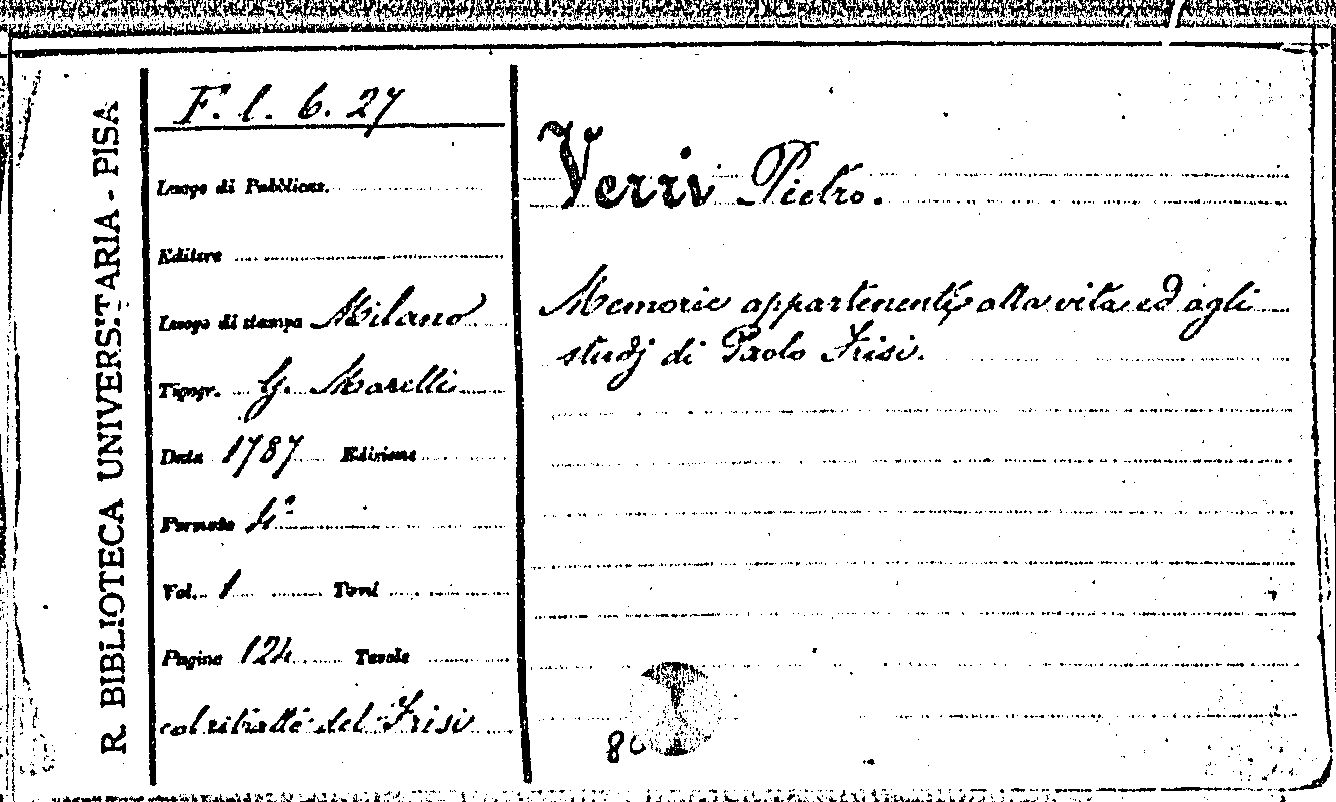 R. BIBLIOTECA UNIVERSITARIA - PISA
F. l. 6. 27
Luogo di Pubblicaz.
Editore
Luogo di stampa Milano
Tipogr. G. Marelli
Data 1787 Edizione
Formato 4°
Vol. 1 Tomi
Pagine 124 Tavole
col ritratto del Frisi
Verri Pietro.
Memorie appartenenti alla vita ed agli
studj di Paolo Frisi.